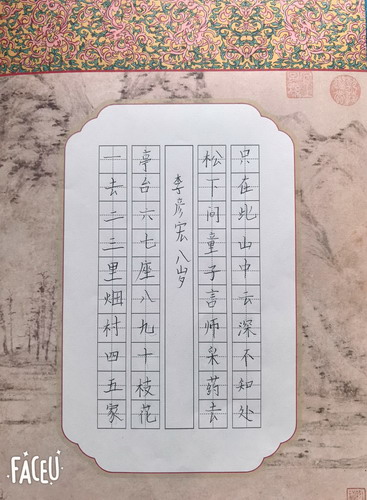 一去二三里烟村四五家
亭台六七座八九十枝花
李彦宏 八岁
松下问童子言师采药去
只在此山中云深不知处
FACEU